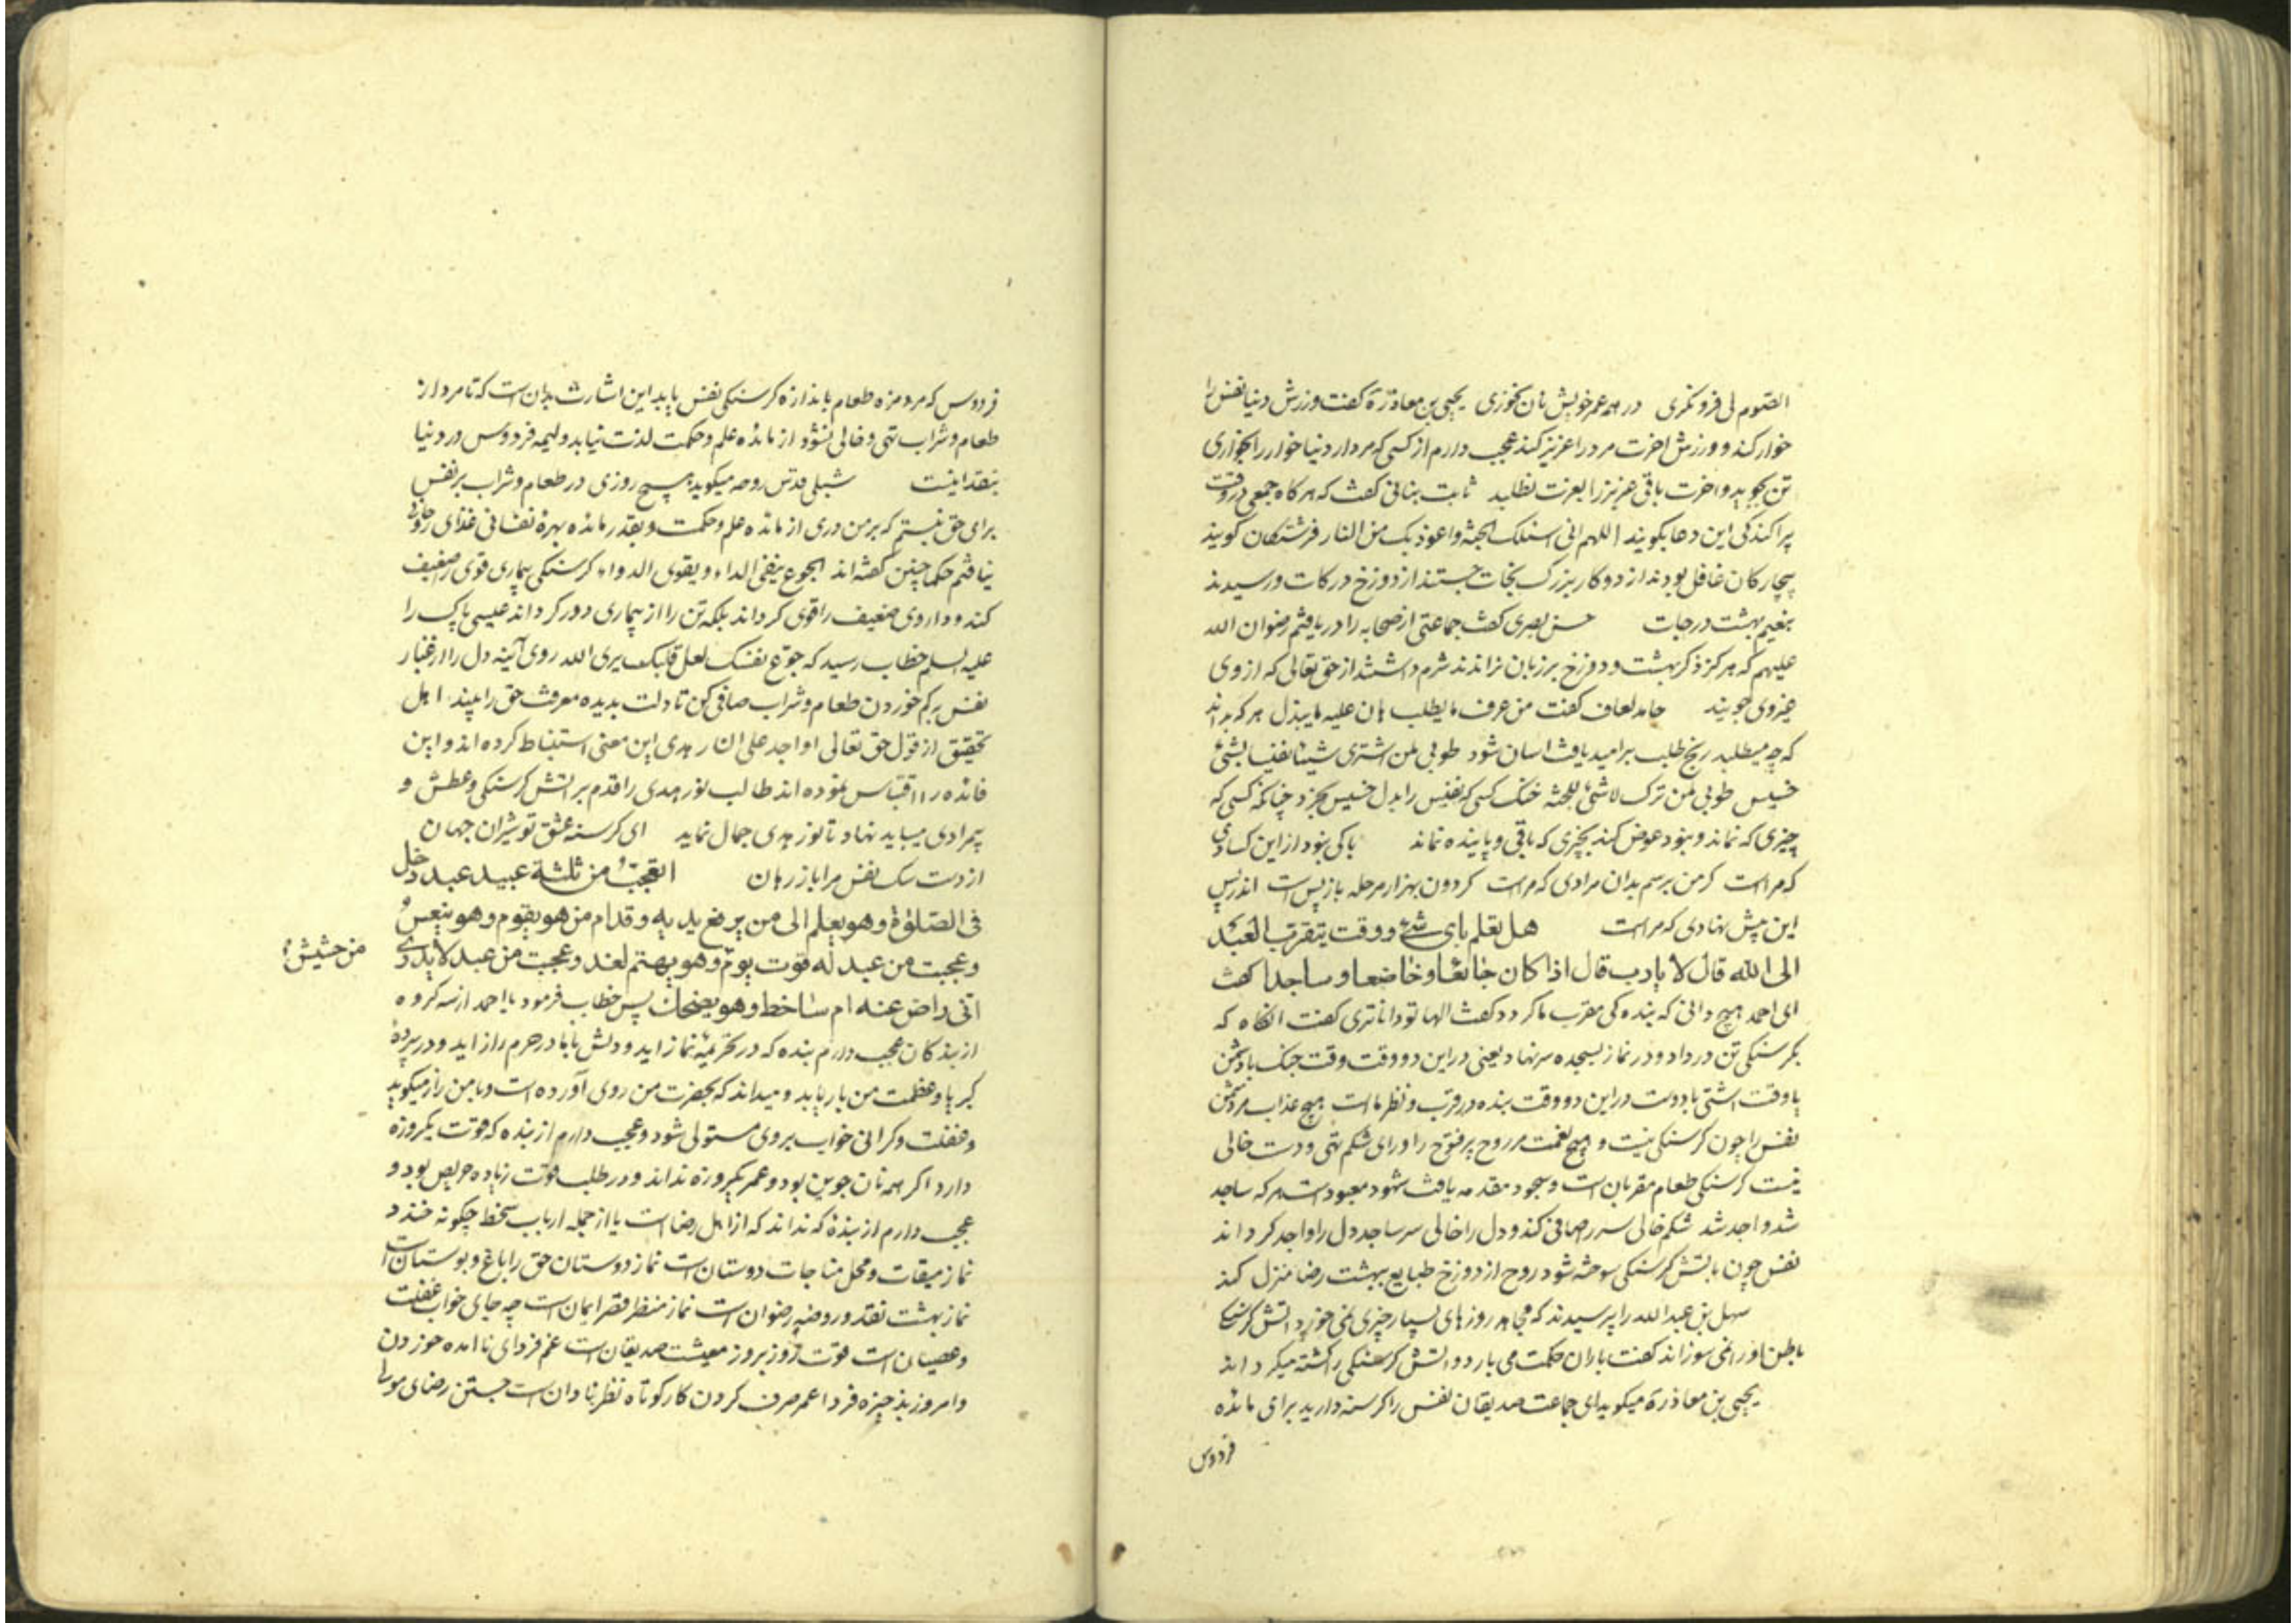 الصوم لی فرو نگری در همه عمر خویش نان نخوری یحیی بن معاذ رة کفت ورزش دنیا نفس را
خوار کند و ورزش اخرت مرد را عزیز کند عجب دارم از کسی که مردار دنیا خوار را بخواری
تن بجوید و اخرت باقی عزیز را بعزت نطلبد ثابت بنانی کفت که هر کاه جمعی در وقت
پراکندکی این دعا بکویند اللهم انی اسئلک الجنة واعوذ بک من النار فرشتکان کویند
بیچارکان غافل بودند از دو کار بزرک نجات جستند از دوزخ درکات و رسیدند
بنعیم بهشت درجات حسن بصری کفت جماعتی از صحابه را دریافتم رضوان الله
علیهم که هرکز ذکر بهشت و دوزخ بر زبان نراندند شرم داشتند از حق تعالی که از وی
غیر وی جویند حامد لفاف کفت من عرف ما یطلب هان علیه ما یبذل هر که بداند
که چه میطلبد رنج طلب بر امید یافت اسان شود طوبی لمن اشتری شیئا نفیسا بشیء
خسیس طوبی لمن ترک لا شیء للجنة خنک کسی که نفیس را بدل خسیس بخرد چنانکه کسی که
چیزی که نماند و بنود عوض کند بچیزی که باقی و پاینده نماند باکی بنود از این کسادی
که مراست کر من برسم بدان مرادی که مراست کردون بهزار مرحله باز پس است اندر پس
این پیش نهادی که مراست هل تعلم بای شیء و وقت یتقرب العبد
الی الله قال لا یارب قال اذا کان جائعا و خاضعا و ساجدا کفت
ای احمد هیچ دانی که بنده کی مقرب ما کردد کفت الها تو داناتری کفت انکاه که
بکرسنکی تن در داد و در نماز بسجده سر نهاد یعنی در این دو وقت وقت جنک با دشمن
یا وقت اشتی با دوست در این دو وقت بنده در قرب و نظر ماست هیچ عذاب مر دشمن
نفس را چون کرسنکی نیست و هیچ نعمت مر روح پر فتوح را ورای شکم تهی و دست خالی
نیست کرسنکی طعام مقربان است و سجود مقدمه یافت شهود معبود است هر که ساجد
شد واجد شد شکم خالی سر را صافی کند و دل را خالی سر ساجد دل را واجد کرداند
نفس چون باتش کرسنکی سوخته شود روح از دوزخ طبایع ببهشت رضا منزل کند
سهل بن عبد الله را پرسیدند که مجاهد روزهای بسیار چیزی نمی خورد اتش کرسنکی
باطن او را نمی سوزاند کفت باران حکمت می بارد و اتش کرسنکی را کشته میکرداند
یحیی بن معاذ رة میکوید ای جماعت صدیقان نفس را کرسنه دارید برای مائده
فردوس
فردوس که مرد مزه طعام باندازه کرسنکی نفس یابد این اشارت بدان است که تا مرد از
طعام و شراب تهی و خالی نشود از مائده علم و حکمت لذت نیابد ولیمه فردوس در دنیا
بنقد اینست شبلی قدس روحه میکوید هیچ روزی در طعام و شراب بر نفس
برای حق نبستم که بر من دری از مائده علم و حکمت و بقدر مائده بهره نفسانی غذای روحانی
نیافتم حکما چنین کفته اند الجوع ینفی الداء و یقوی الدواء کرسنکی بیماری قوی را ضعیف
کند و داروی ضعیف را قوی کرداند بلکه تن را از بیماری دور کرداند عیسی پاک را
علیه السلم خطاب رسید که جوّع نفسک لعل قلبک یری الله روی آئینه دل را از غبار
نفس بر کم خوردن طعام و شراب صافی کن تا دلت بدیده معرفت حق را بیند اهل
تحقیق از قول حق تعالی او اجد علی النار هدی این معنی استنباط کرده اند و این
فائده را اقتباس نموده اند طالب نور هدی را قدم بر اتش کرسنکی و عطش و
بیمرادی میباید نهاد تا نور هدی جمال نماید ای کرسنه عشق تو شیران جهان
از دست سک نفس مرا باز رهان اتعجب من ثلثة عبید عبد دخل
فی الصلوة وهو یعلم الی من یرفع یدیه و قدام من هو یقوم وهو ینعس
وعجبت من عبد له قوت یوم وهو یهتم لغد وعجبت من عبد لا یدری
من حشیش
انی راض عنه ام ساخط وهو یضحک پس خطاب فرمود یا احمد از سه کروه
از بندکان عجب دارم بنده که در تحریمه نماز اید و دلش با ما در حرم راز اید و در پرده
کبریا و عظمت من بار یابد و میداند که بحضرت من روی آورده است و با من راز میکوید
و غفلت و کرانی خواب بر وی مستولی شود و عجب دارم از بنده که قوت یکروزه
دارد اکر همه نان جوین بود و عمر یکروزه نداند و در طلب قوت زیاده حریص بود و
عجب دارم از بنده که نداند که از اهل رضاست یا از جمله ارباب سخط چکونه خندد
نماز میقات و محل مناجات دوستان است نماز دوستان حق را باغ و بوستان است
نماز بهشت نقد و روضه رضوان است نماز منظر قصر ایمان است چه جای خواب غفلت
و عصیان است قوت روز بروز معیشت صدیقان است غم فردای نا امده خوردن
و امروز بذخیره فردا عمر صرف کردن کار کوتاه نظر نادان است جستن رضای مولا